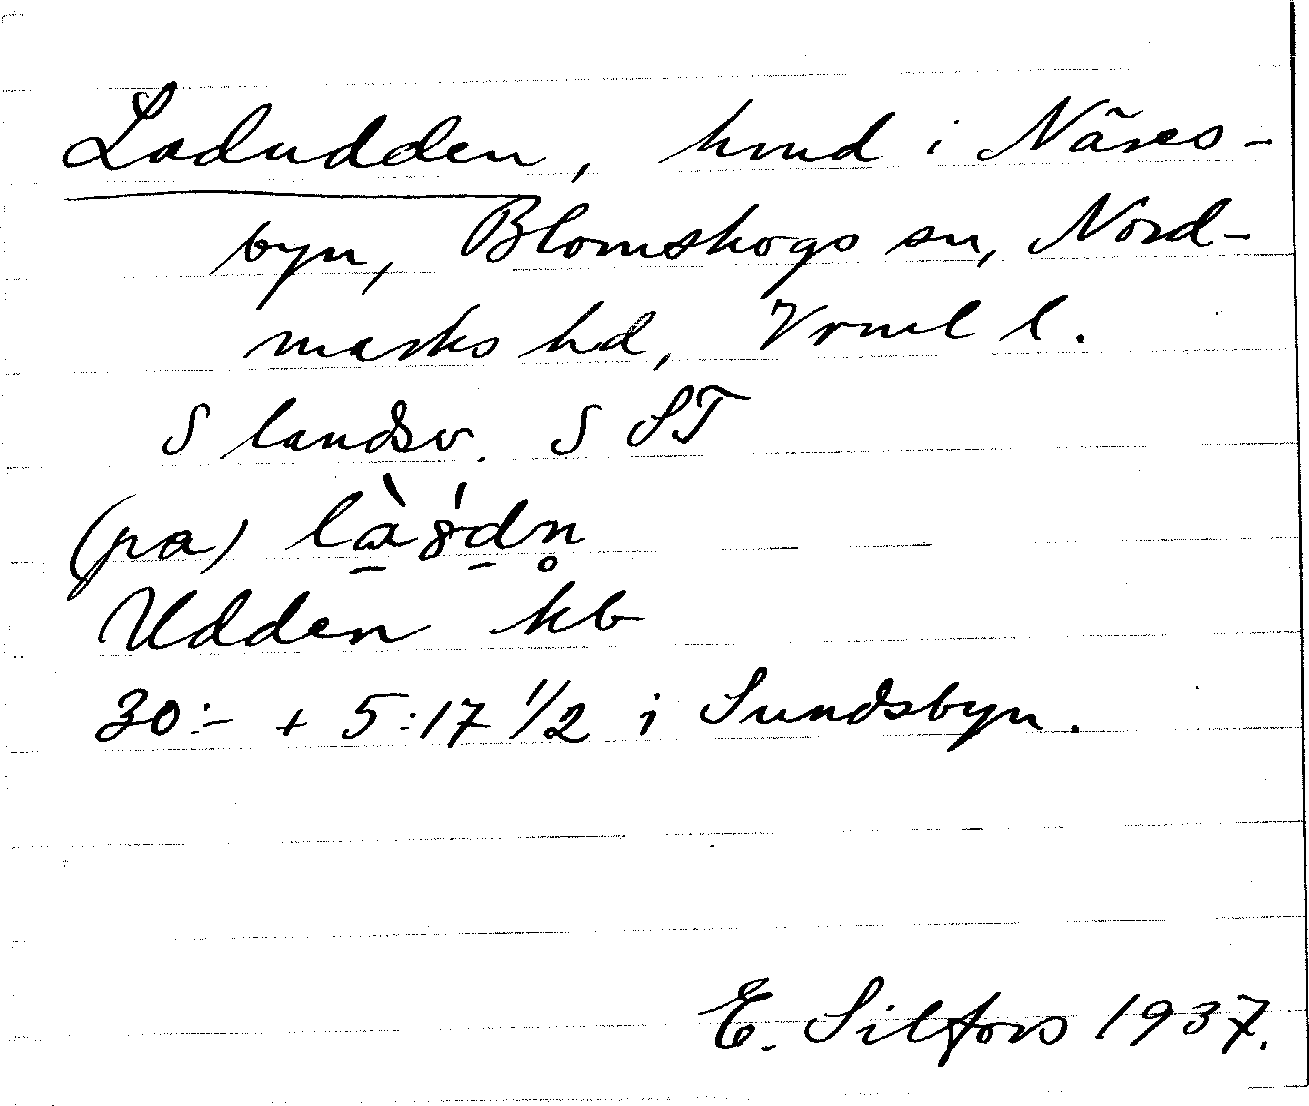 Ladudden, hmd i Näres-
byn, Blomskogs sn, Nord-
marks hd, Vrml l.
S landsv. S ST
(pa) là̠ȣ́d̠n̥
Udden kb
30:- + 5:17 1/2 i Sundsbyn.
E. Silfors 1937.